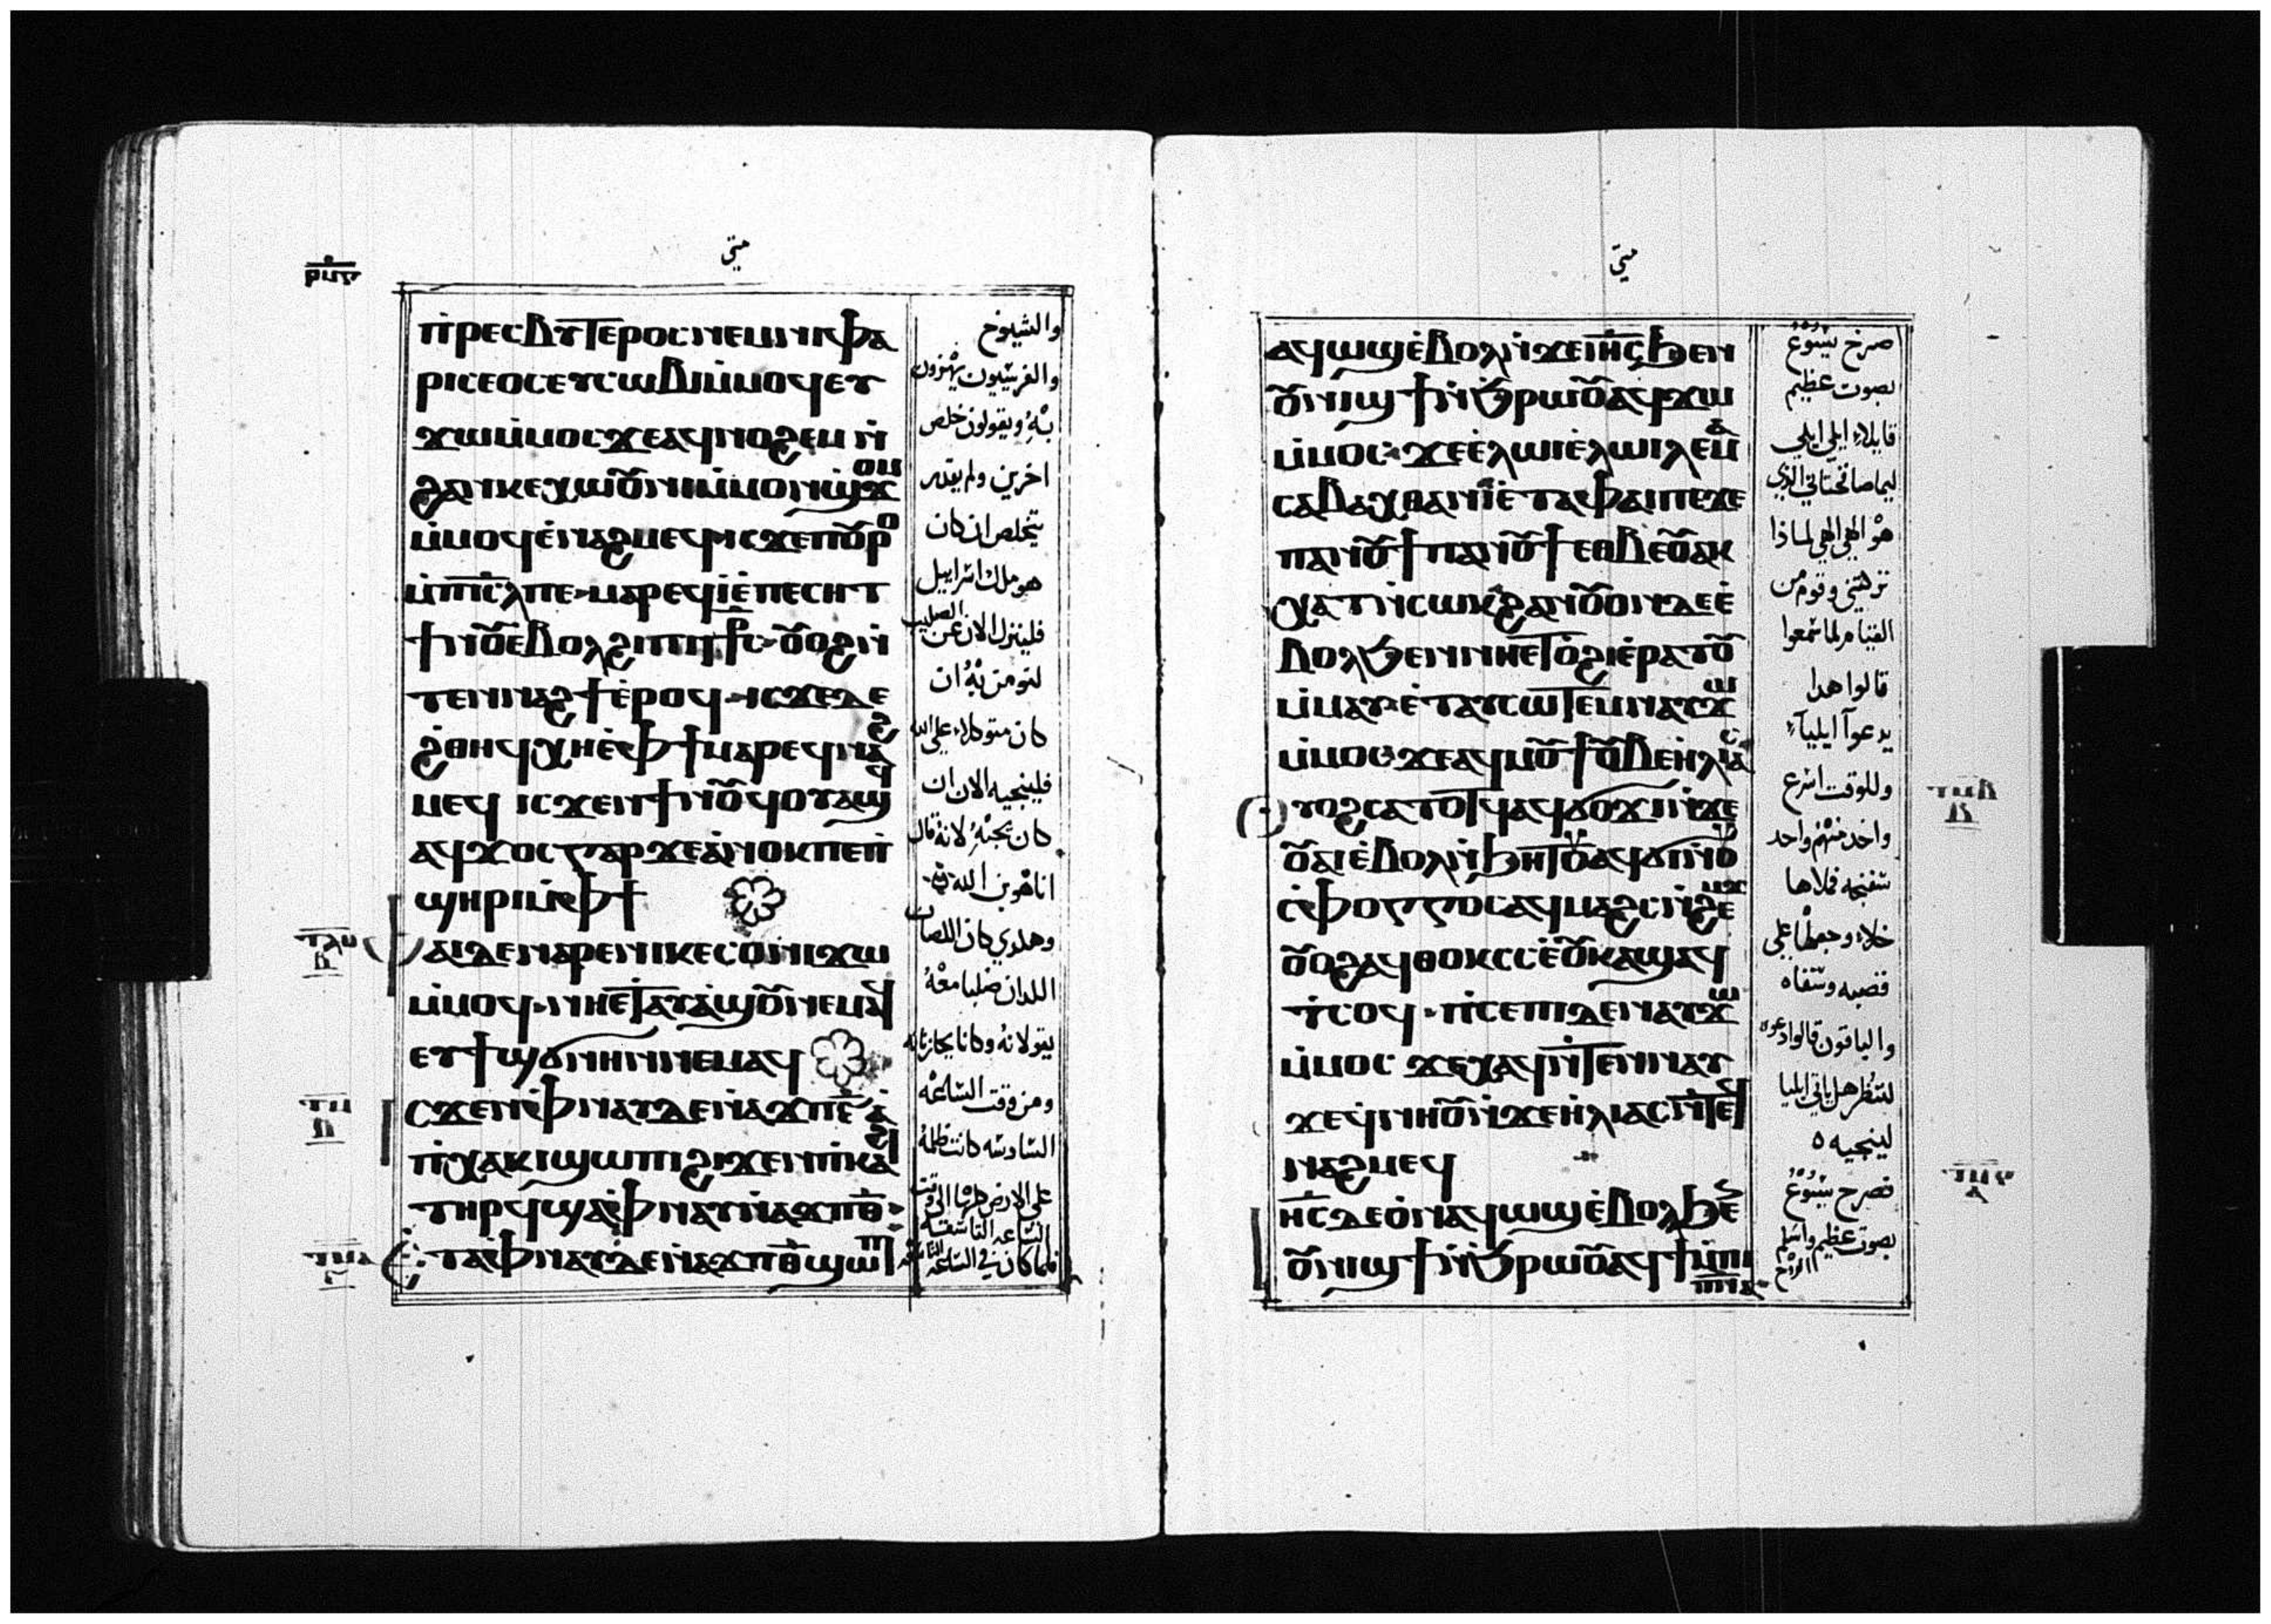 متى
ⲡ̀ⲣⲉⲥⲃⲩⲧⲉⲣⲟⲥⲛⲉⲙⲛⲓⲫⲁ
ⲣⲓⲥⲉⲟⲥⲉⲩⲥⲱⲃⲓⲙ̀ⲙⲟϥⲉⲩ
ϫⲱⲙ̀ⲙⲟⲥϫⲉⲁϥⲛⲟϩⲉⲙⲛ̀
ϩⲁⲛⲕⲉⲭⲱⲟⲩⲛⲓⲙ̀ⲙⲟⲛϣϫⲟⲙ
ⲙ̀ⲙⲟϥⲉ̀ⲛⲁϩⲙⲉϥⲓⲥϫⲉⲡⲟⲩⲣⲟ
ⲙ̀ⲡⲓⲥ̅ⲗ̅ⲡⲉⲙⲁⲣⲉϥⲓ̀ⲉ̀ⲡⲉⲥⲏⲧ
ϯⲛⲟⲩⲉⲃⲟⲗϩⲓⲡⲓϯⲥ ⲟⲩⲟϩⲛ̀
ⲧⲉⲛⲛⲁϩϯⲉ̀ⲣⲟϥ ⲓⲥϫⲉⲇⲉ
ϩ̀ⲑⲏϥⲭⲏⲉ̀ⲫϯⲙⲁⲣⲉϥⲛⲁϩ
ⲙⲉϥ ⲓⲥϫⲉⲛϯⲛⲟⲩϥⲟⲩⲁϣϥ
ⲁϥϫⲟⲥⲅⲁⲣϫⲉⲁ̀ⲛⲟⲕⲡⲉⲡ̀
ϣⲏⲣⲓⲙ̀ⲫϯ
ⲁⲓⲇⲉⲛⲁⲣⲉⲛⲓⲕⲉⲥⲟⲛⲓϫⲱ
ⲙ̀ⲙⲟϥⲛⲏⲉⲧⲁⲩⲁ̀ϣⲟⲩⲛⲉⲙⲁϥ
ⲉⲩϯϣⲟⲩⲛⲏⲓⲛⲛⲉⲙⲁϥ
ⲥϫⲉⲛⲫⲛⲁⲩⲇⲉⲛ̀ⲁϫⲡⲉ̅ ⲁ̀
ⲡ̀ⲭⲁⲕⲓϣⲱⲡⲓϩⲓϫⲉⲛⲡ̀ⲕⲁϩⲓ
ⲧⲏⲣϥϣⲁⲫ̀ⲛⲁⲩⲛ̀ⲁϫⲡⲑ̅
ⲧⲁⲫ̀ⲛⲁⲩⲇⲉⲛ̀ⲁϫⲡⲑ̅ϣⲱⲡⲓ
والشيوخ
والفريسيون يهزون
به ويقولون خلص
اخرين ولم يقدر
يتخلص ان كان
هو ملك اسراييل
فلينزل الان عن الصليب
لنومن به ان
كان متوكلا على الله
فلينجيه الان ان
كان يحبه لانه قال
انا هو ابن الله
وهلدي كان اللصان
اللدان صلبا معه
يقولانه وكانا يعيرانه
ومن وقت الساعه
السادسه كانت ظلمه
على الارض كلها الى وقت
الساعه التاسعه
فلما كان في الساعه التاسعه
متى
ⲁϥⲱϣⲉ̀ⲃⲟⲗⲛ̀ϫⲉⲓⲏ̅ⲥ̅ϧⲉⲛ
ⲟⲩⲛⲓϣϯⲛ̀ϧⲣⲱⲟⲩⲁϥϫⲱ
ⲙ̀ⲙⲟⲥ ϫⲉⲉ̀ⲗⲱⲓⲉ̀ⲗⲱⲓⲗⲉⲙⲁ
ⲥⲁⲃⲁⲭⲑⲁⲛⲓⲉ̀ⲧⲉⲫⲁⲓⲡⲉϫⲉ
ⲡⲁⲛⲟⲩϯⲡⲁⲛⲟⲩϯⲉⲑⲃⲉⲟⲩⲁⲕ
ⲭⲁⲧⲛ̀ⲥⲱⲕϩⲁⲛⲟⲩⲟⲛⲇⲉⲉ̀
ⲃⲟⲗϧⲉⲛⲛⲏⲉⲧⲟϩⲓⲉ̀ⲣⲁⲧⲟⲩ
ⲙ̀ⲙⲁⲩⲉ̀ⲧⲁⲩⲥⲱⲧⲉⲙⲛⲁⲩϫⲱ
ⲙ̀ⲙⲟⲥϫⲉⲁϥⲙⲟⲩϯⲟⲩⲃⲉⲏ̀ⲗⲓⲁⲥ
ⲩⲟϩⲥⲁⲧⲟⲧϥⲁϥϭⲟϫⲓⲛ̀ϫⲉ
ⲟⲩⲁⲓⲉ̀ⲃⲟⲗⲛ̀ϧⲏⲧⲟⲩⲁϥϭⲓⲛⲟⲩ
ⲥ̀ⲫⲟⲅⲅⲟⲥⲁϥⲙⲁϩⲥⲛ̀ϩⲉⲙϫ
ⲟⲩⲟϩⲁϥⲑⲟⲕⲥⲥⲉ̀ⲟⲩⲕⲁϣⲁϥ
ⲧ̀ⲥⲟϥ ⲡ̀ⲥⲉⲡⲓⲇⲉⲛⲁⲩϫⲱ
ⲙ̀ⲙⲟⲥ ϫⲉⲭⲁϥⲛ̀ⲧⲉⲛⲛⲁⲩ
ϫⲉϥ̀ⲛⲏⲟⲩⲛ̀ϫⲉⲏ̀ⲗⲓⲁⲥⲛ̀ⲧⲉϥ
ⲛⲁϩⲙⲉϥ
ⲓⲏ̅ⲥ̅ⲇⲉⲟⲛⲁϥⲱϣⲉ̀ⲃⲟⲗϧⲉⲛ
ⲟⲩⲛⲓϣϯⲛ̀ϧⲣⲱⲟⲩⲁϥϯⲙ̀ⲡⲓ
ⲡ̅ⲛ̅ⲁ̅
صرخ يسوع
بصوت عظيم
قايلا ايلي ايلي
ليما صافختاني الذي
هو الهي الهي لماذا
تركتني وقوم من
القيام لما سمعوا
قالوا هدا
يدعوا ايلياء
وللوقت اسرع
واحد منهم واخد
سفنجه فملاها
خلا وجعلها على
قصبه وسقاه
والباقون قالوا دعوه
لننظر هل ياتي ايليا
لينجيه
فصرخ يسوع
بصوت عظيم واسلم
الروح